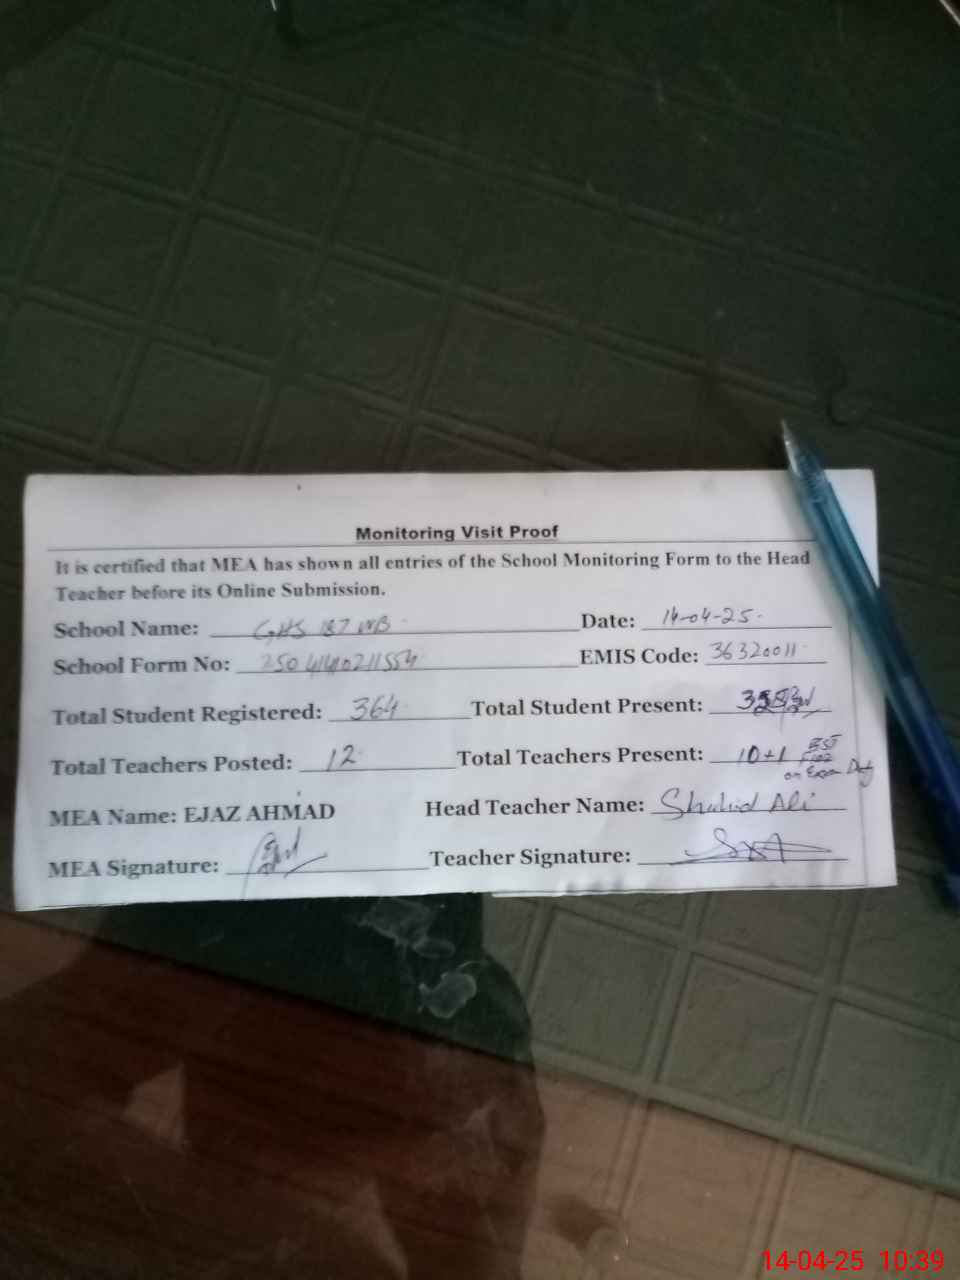 Monitoring Visit Proof
It is certified that MEA has shown all entries of the School Monitoring Form to the Head
Teacher before its Online Submission.
School Name: GHS 187 WB Date: 14-04-25
School Form No: 2504140211554 EMIS Code: 36320011
Total Student Registered: 364 Total Student Present:
Total Teachers Posted: 12 Total Teachers Present: 10+1
on Exam Duty
MEA Name: EJAZ AHMAD Head Teacher Name: Shahid Ali
MEA Signature: Teacher Signature:
14-04-25 10:39